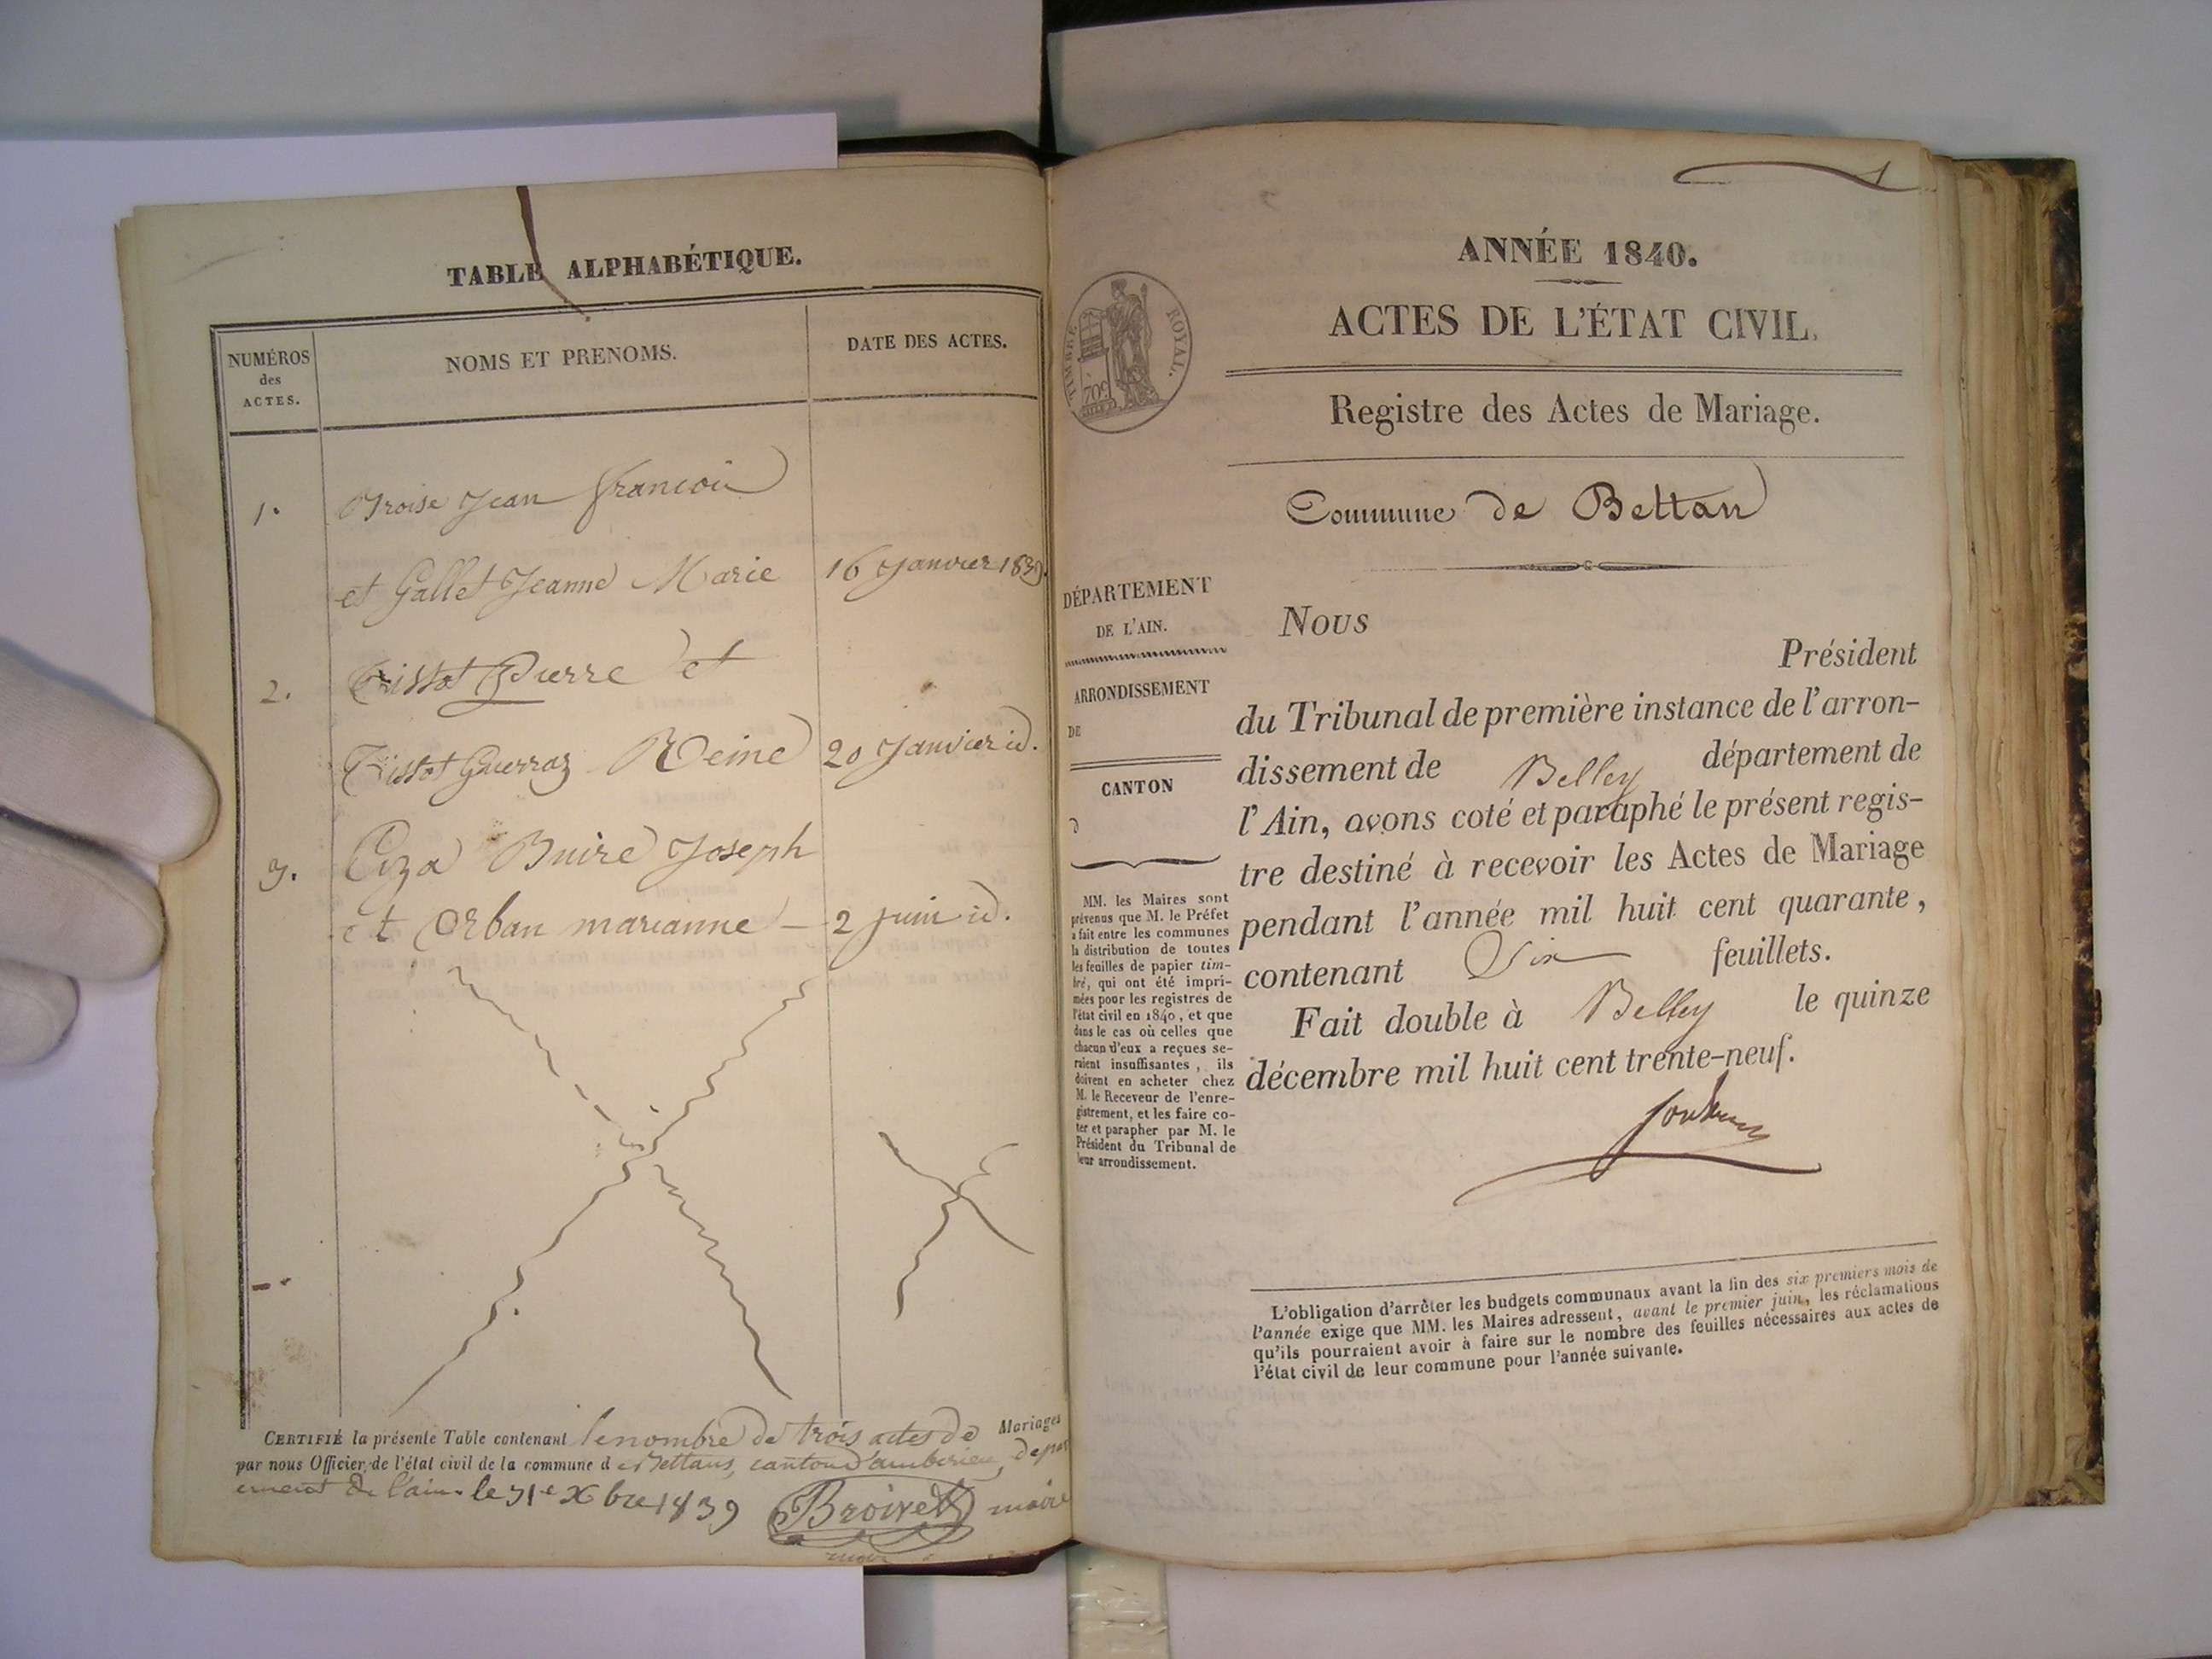 TABLE ALPHABÉTIQUE.
NUMÉROS
des
ACTES.
NOMS ET PRENOMS.
DATE DES ACTES.
1. Broise Jean francois
et Gallet Jeanne Marie 16 Janvier 1839.
2. Tissot Pierre et
Tissot Guerraz Reine 20 Janvier id.
3. Ciza Buire Joseph
et Orban marianne – 2 juin id.
CERTIFIÉ la présente Table contenant le nombre de trois actes de Mariages
par nous Officier de l'état civil de la commune d e Bettans, canton d'amberieu, depar
ement de l'ain. le 31e Xbre 1839 maire
1
ANNÉE 1840.
ACTES DE L'ÉTAT CIVIL.
TIMBRE ROYAL.
70c
Registre des Actes de Mariage.
Commune de Bettan
DÉPARTEMENT
DE L'AIN.
ARRONDISSEMENT
DE
CANTON
d
MM. les Maires sont
prévenus que M. le Préfet
a fait entre les communes
la distribution de toutes
les feuilles de papier tim-
bré, qui ont été impri-
mées pour les registres de
l'état civil en 1840, et que
dans le cas où celles que
chacun d'eux a reçues se-
raient insuffisantes, ils
doivent en acheter chez
M. le Receveur de l'enre-
gistrement, et les faire co-
ter et parapher par M. le
Président du Tribunal de
leur arrondissement.
Nous
Président
du Tribunal de première instance de l'arron-
dissement de Belley département de
l'Ain, avons coté et paraphé le présent regis-
tre destiné à recevoir les Actes de Mariage
pendant l'année mil huit cent quarante,
contenant Six feuillets.
Fait double à Belley le quinze
décembre mil huit cent trente-neuf.
L'obligation d'arrêter les budgets communaux avant la fin des six premiers mois de
l'année exige que MM. les Maires adressent, avant le premier juin, les réclamations
qu'ils pourraient avoir à faire sur le nombre des feuilles nécessaires aux actes de
l'état civil de leur commune pour l'année suivante.